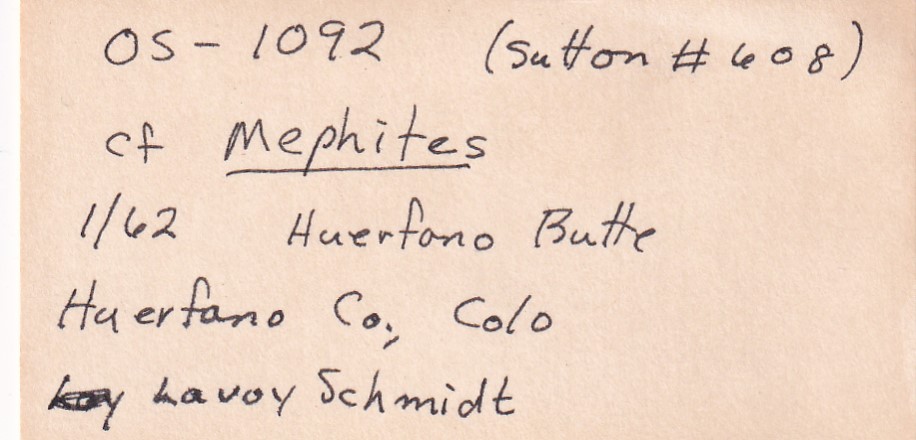 OS-1092 (Sutton #608)
cf Mephites
1/62 Huerfano Butte
Huerfano Co., Colo
Lavoy Schmidt